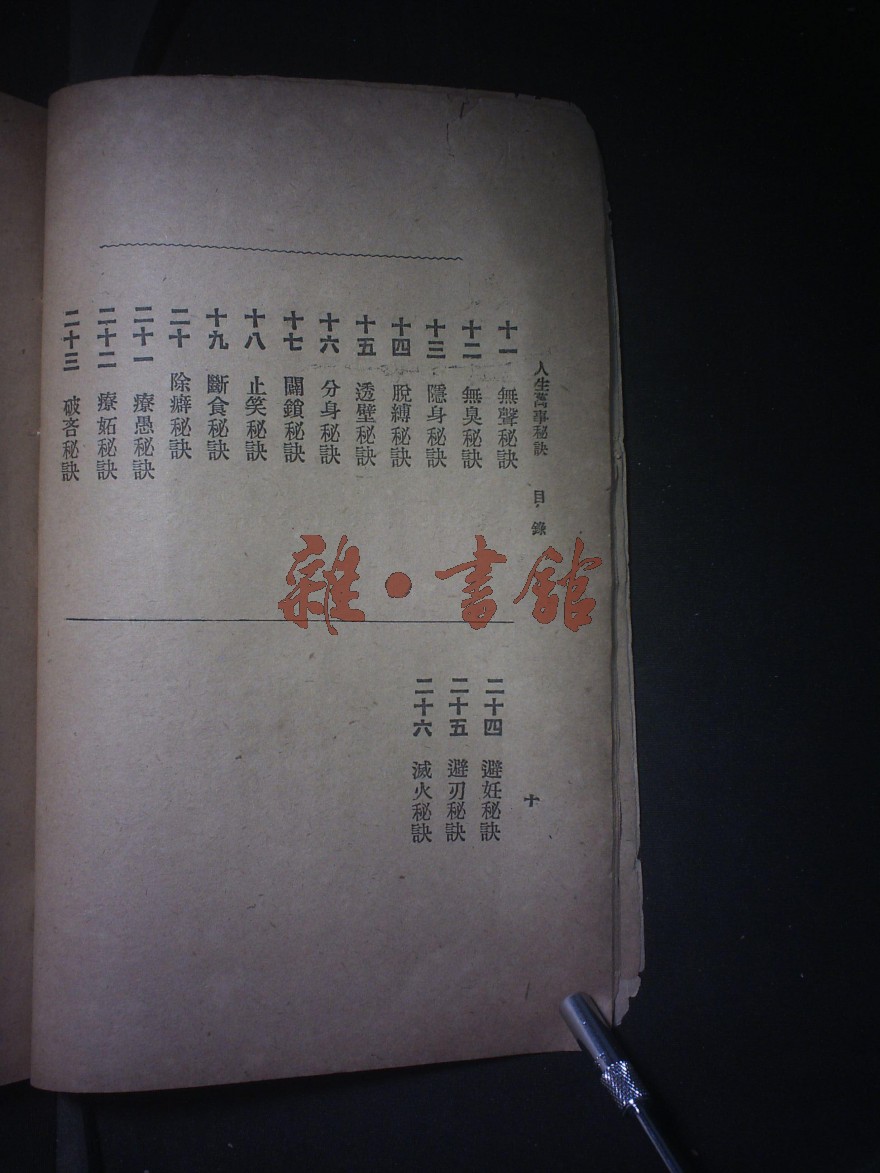 人生萬事秘訣 目錄
十一 無聲秘訣
十二 無臭秘訣
十三 隱身秘訣
十四 脫縛秘訣
十五 透壁秘訣
十六 分身秘訣
十七 闢鎖秘訣
十八 止笑秘訣
十九 斷食秘訣
二十 除癖秘訣
二十一 療愚秘訣
二十二 療妬秘訣
二十三 破吝秘訣
二十四 避妊秘訣
二十五 避刃秘訣
二十六 滅火秘訣
十
雜·書館